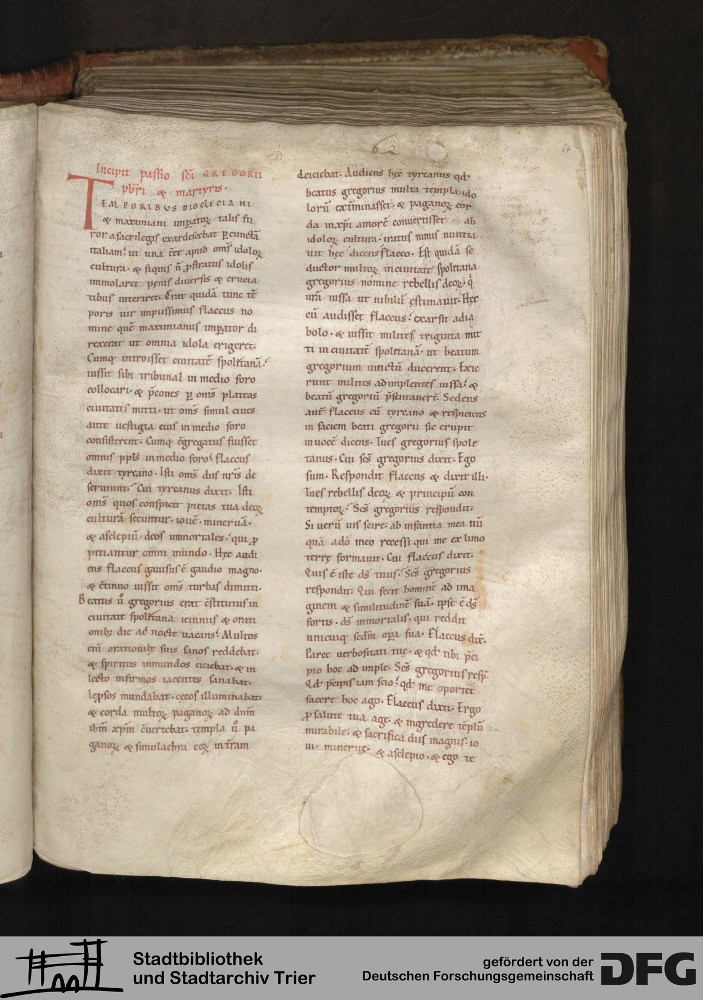 62
Incipit passio sci GREGORII
pbri & martyris.
TEMPORIBVS DIOCLECIANI
& maximiani impator talis fu
ror a sacrilegis exardescebat p cuncta
italiam. ut una eet apud oms idoloꝝ
cultura. & siquis n pstratus idolis
immolaret penis diuersis & crucia
tibus interiret. Erat quida tunc te
poris uir impiissimus flaccus no
mine que maximianus impator di
rexerat ut omnia idola erigeret.
Cumq introisset ciuitate spoletana.
iussit sibi tribunal in medio foro
collocari. & pcones p oms plateas
ciuitatis mitti. ut oms simul ciues
ante uestigia eius in medio foro
consisterent. Cumq cgregatus fuisset
omnis ppls in medio foro. flaccus
dixit tyrcano. Isti oms diis nris de
seruiunt. Cui tyrcanus dixit. Isti
oms quos conspicit pietas tua deoꝝ
cultura secuntur. ioue. minerua.
& asclepiu. deos immortales. qui p
pitiantur omni mundo. Hec audi
ens flaccus gauisus e gaudio magno.
& ctinuo iussit oms turbas dimitti.
Beatus u gregorius erat cstitutus in
ciuitate spoletana ieiuniis & orati
onib; die ac nocte uacans. Multos
eni orationib; suis sanos reddebat.
& spiritus inmundos eiciebat. & in
lecto infirmos iacentes sanabat.
leprosos mundabat. cecos illuminabat.
& corda multoꝝ paganoꝝ ad dnm
ihm xpm cuertebat. templa u pa
ganoꝝ & simulachra eoꝝ in terram
deiciebat. Audiens hec tyrcanus qd
beatus gregorius multa templa ido
loru exterminasset. & paganoꝝ cor
da in xpi amore conuertisset ab
idoloꝝ cultura. iratus nimis nuntia
uit hec dicens flacco. Est quida se
ductor multoꝝ in ciuitate spoletana
gregorius nomine rebellis deoꝝ. q
nra iussa ut nihilu estimauit. Hec
cu audisset flaccus. exarsit a dia
bolo. & iussit milites triginta mit
ti in ciuitate spoletana. ut beatum
gregorium uinctu ducerent. Exie
runt milites adimplentes iussa. &
beatu gregoriu psentauere. Sedens
aute flaccus cu tyrcano & respiciens
in faciem beati gregorii sic erupit
in uoce dicens. Tu es gregorius spole
tanus. Cui scs gregorius dixit. Ego
sum. Respondit flaccus & dixit illi.
Tu es rebellis deoꝝ & principu con
temptor. Scs gregorius respondit.
Si ueru uis scire. ab infantia mea nu
qua a do meo recessi qui me ex limo
terre formauit. Cui flaccus dixit.
Quis e iste ds tuus. Scs gregorius
respondit. Qui fecit homine ad ima
gine & similitudine sua. ipse e ds
fortis. ds immortalis. qui reddit
unicuiq; sedm opa sua. Flaccus dix.
Parce uerbositati tue. & qd tibi pci
pio hoc ad imple. Scs gregorius resp.
Qd pcipis iam scio. qd me oportet
facere hoc ago. Flaccus dixit. Ergo
p salute tua age. & ingredere teplu
mirabile. & sacrifica diis magnis. io
ui. minerue. & asclepio. & ego te
Stadtbibliothek
und Stadtarchiv Trier
gefördert von der
Deutschen Forschungsgemeinschaft
DFG